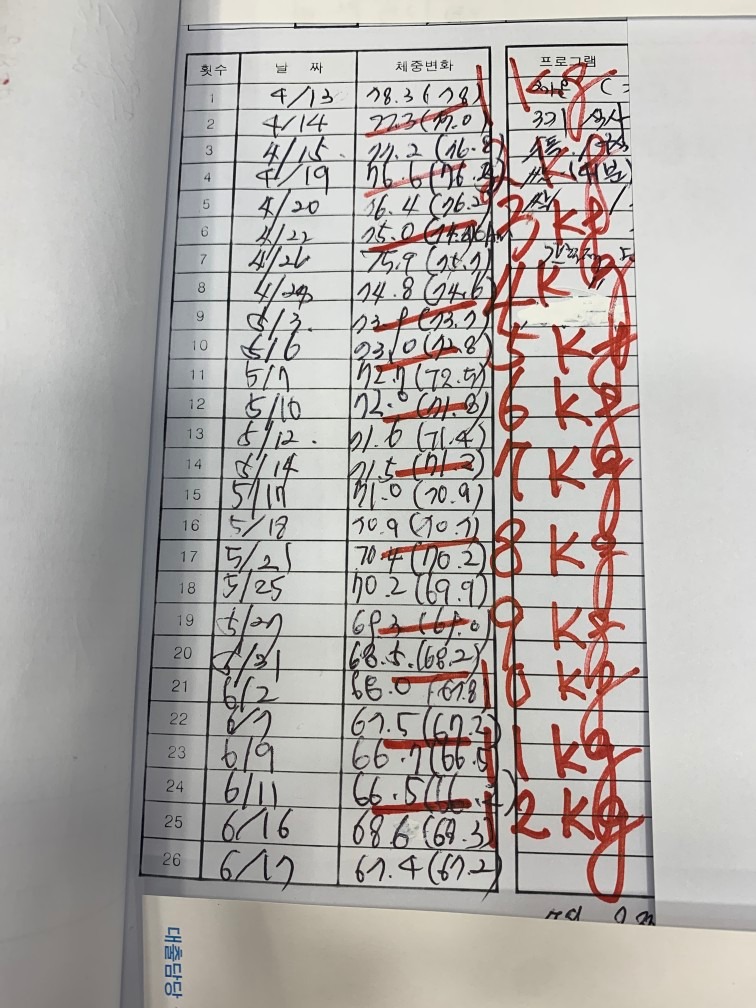 횟수 날 짜 체중변화 프로그램
1 4/13 78.3 (78) 1kg
2 4/14 77.3 (77.0)
3 4/15. 77.2 (76.8) 2kg
4 4/19 76.6
5 4/20 76.4 (76.2) 3kg
6 4/22 75.0
7 4/26 75.9
8 4/29 74.8 (74.6) 4kg
9 5/3. (73.7)
10 5/6 73.0 (72.8) 5kg
11 5/7 72.7 (72.5)
12 5/10 72.0 (71.8) 6kg
13 5/12. 71.6 (71.4)
14 5/14 71.5 (71.2) 7kg
15 5/17 71.0 (70.9)
16 5/18 70.9 (70.7)
17 5/21 70.4 (70.2) 8kg
18 5/25 70.2 (69.9)
19 5/27 69.3 9kg
20 5/31 68.5. (68.2)
21 6/2 68.0 (67.8) 10kg
22 6/7 67.5 (67.2)
23 6/9 66.7 (66.5) 11kg
24 6/11 66.5
25 6/16 68.6 (68.3) 12kg
26 6/17 67.4 (67.2)
대출담당